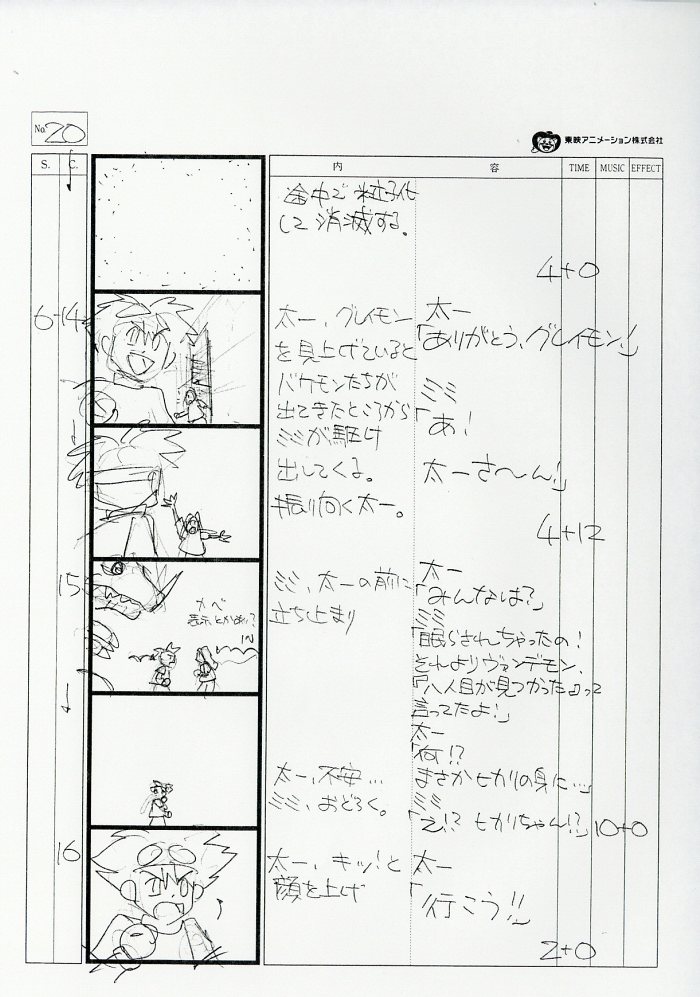 No. 20
東映アニメーション株式会社
S. C. 内 容 TIME MUSIC EFFECT
途中で粒子化
して消滅する。
4+0
6-14
太一、グレイモン
を見上げていると
バケモンたちが
出てきたところから
ミミが駆け
出してくる。
振り向く太一。
太一
「ありがとう、グレイモン!」
ミミ
「あ!
太一さ〜ん!」
4+12
15
カベ
IN
ミミ、太一の前に
立ち止まり
太一
「みんなは?」
ミミ
「眠らされちゃったの!
それよりヴァンデモン、
『八人目が見つかった』って
言ってたよ!」
太一
「何!?
まさかヒカリの身に…」
太一、不安…
ミミ、おどろく。
ミミ
「え!? ヒカリちゃん!?」
10+0
16
太一、キッ!と
顔を上げ
太一
「行こう!!」
2+0